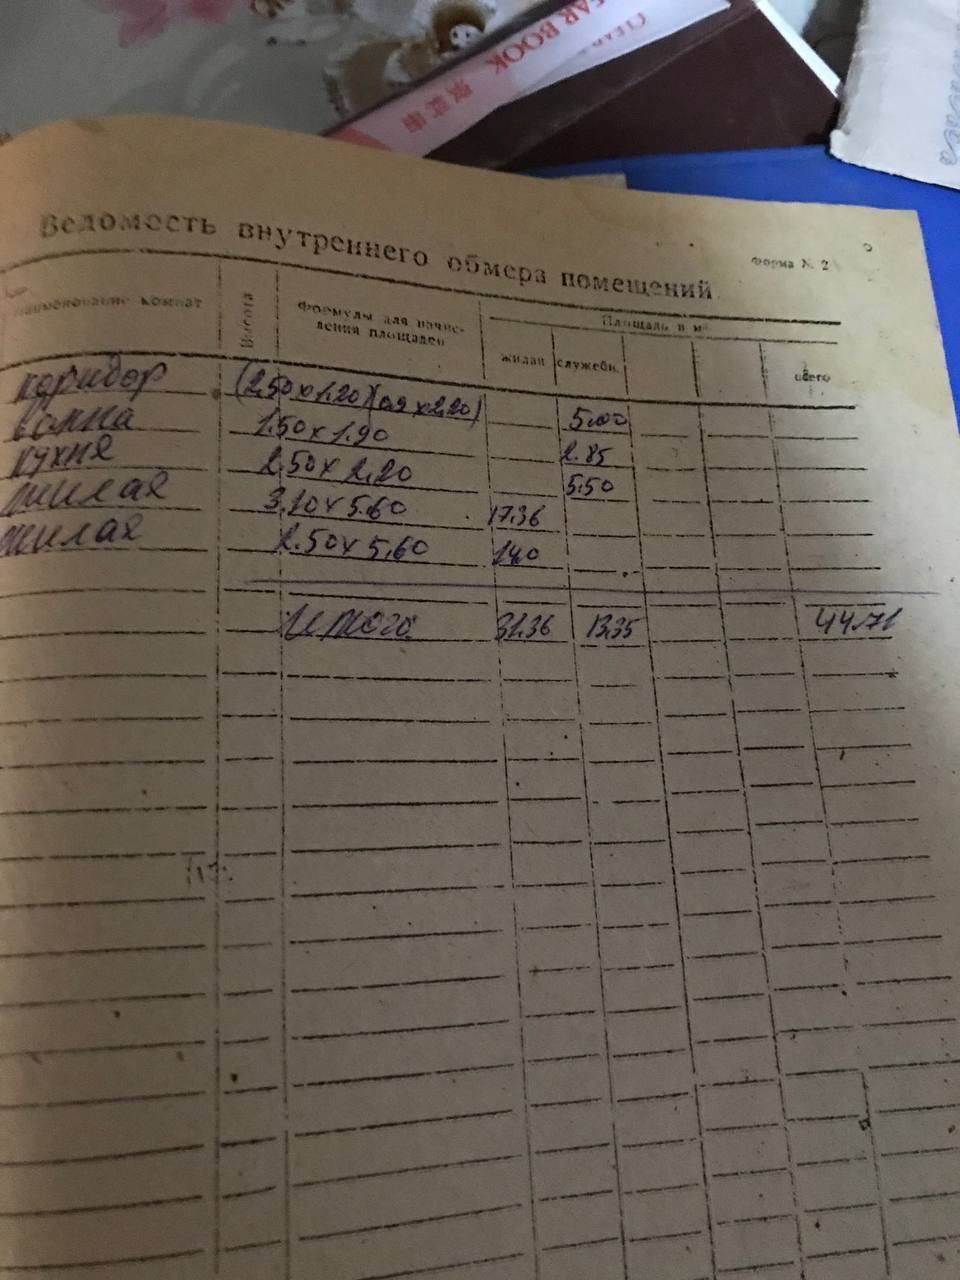 EAR BOOK
Ведомость внутреннего обмера помещений
Форма № 2
Наименование комнат
Высота
Формулы для начис-
ления площадей
Площадь в м²
жилая
служебн.
всего
коридор (2,50×1,20)(0,9×2,20) 5.00
ванна 1.50×1.90 2.85
кухня 2.50×2.20 5.50
жилая 3.10×5.60 17.36
жилая 2.50×5.60 14,0
Итого 31.36 13.35 44.71